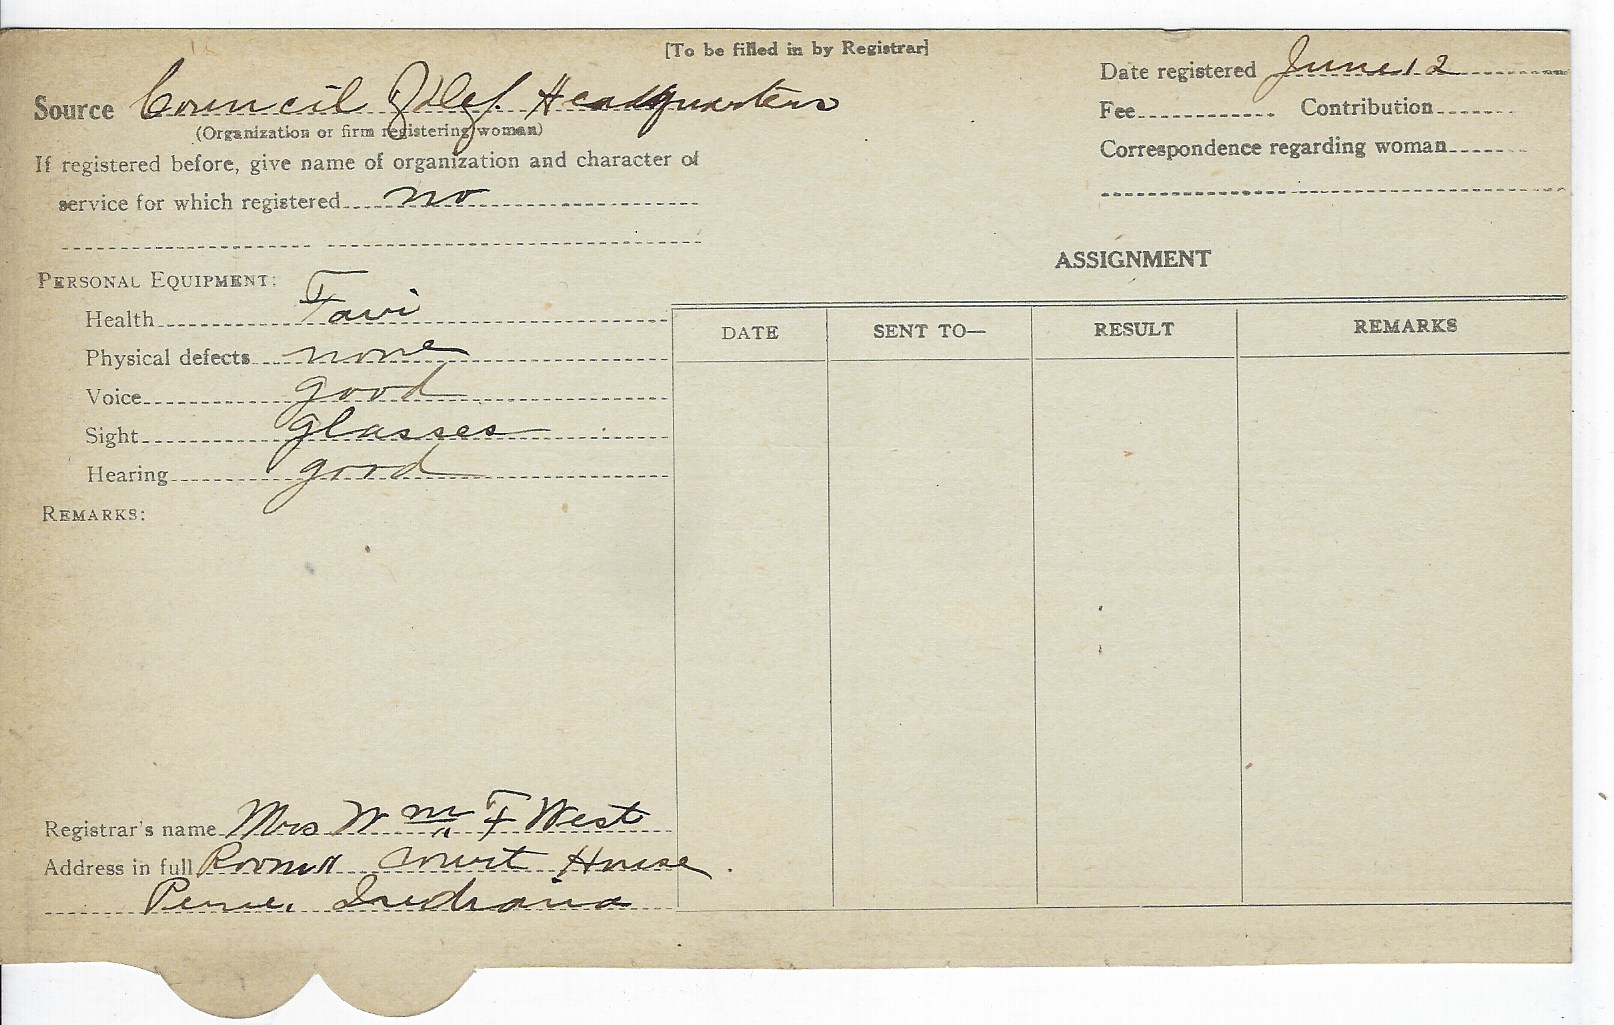 [To be filled in by Registrar]
Date registered June 12
Source Council of Def. Headquarters
(Organization or firm registering woman)
Fee Contribution
If registered before, give name of organization and character of
Correspondence regarding woman
service for which registered no
ASSIGNMENT
PERSONAL EQUIPMENT:
Health Fair
Physical defects none
Voice good
Sight glasses
Hearing good
DATE SENT TO— RESULT REMARKS
REMARKS:
Registrar's name Mrs Wm F West
Address in full Room 11 Court House
Peru, Indiana